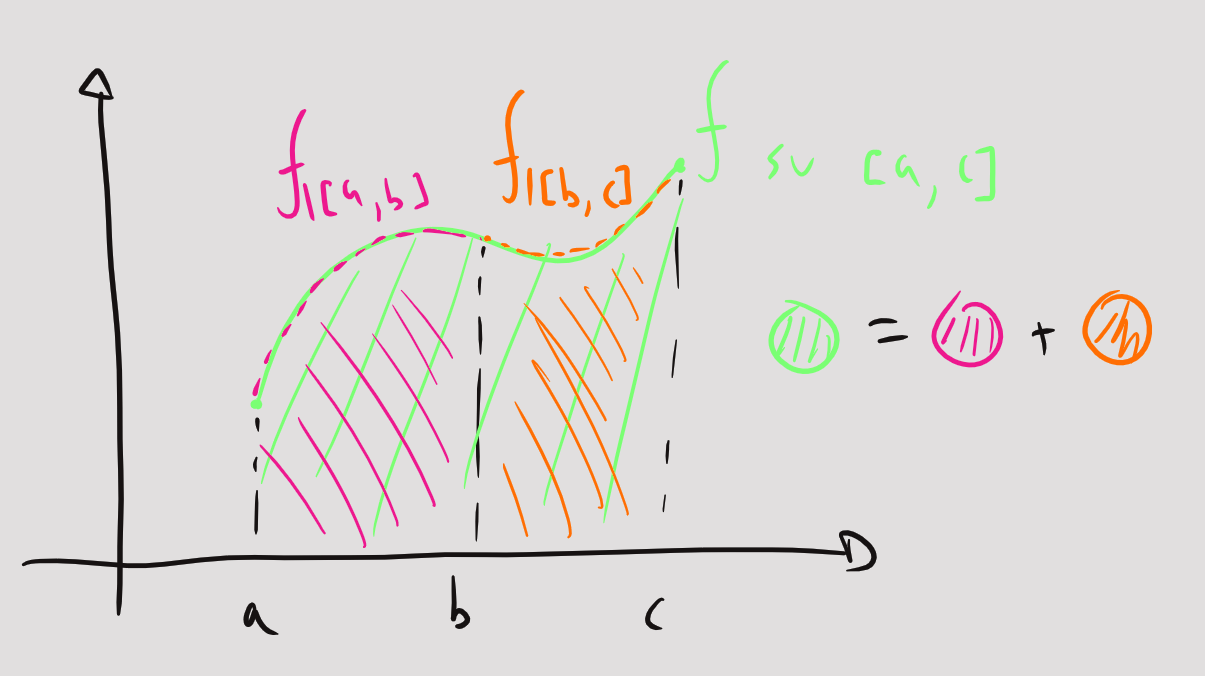 f|[a,b]
f|[b,c]
f su [a,c]
= +
a b c